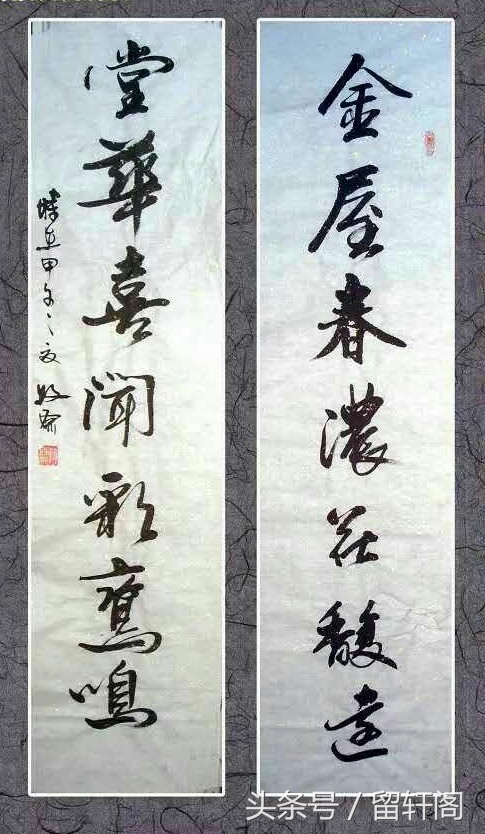 金屋春濃花馥遠
堂華喜聞彩鸞鳴
時在甲午之夏
头条号 / 留轩阁